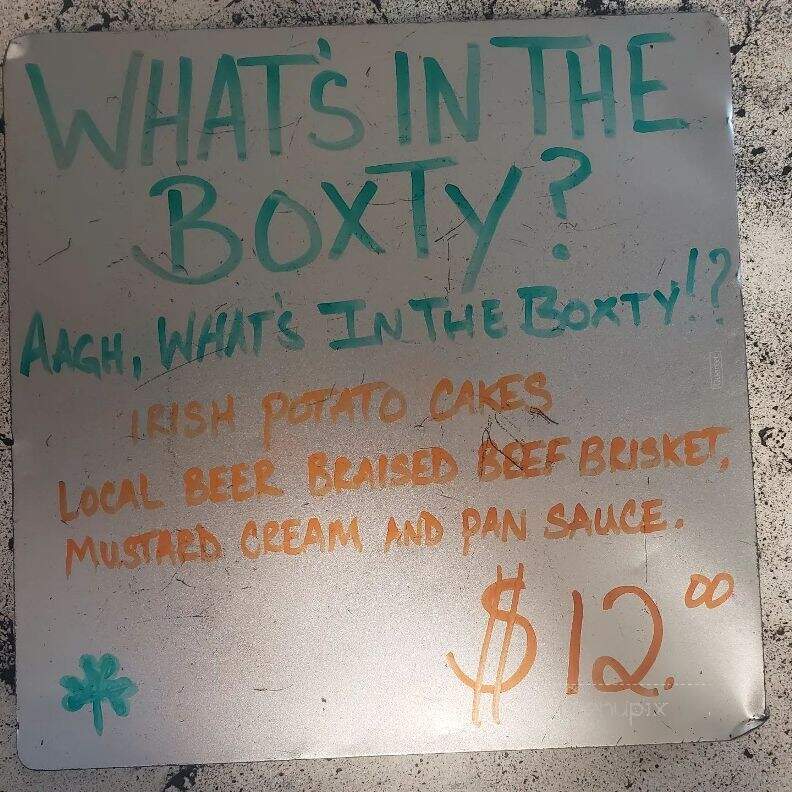 WHAT'S IN THE
BOXTY?
AAGH, WHAT'S IN THE BOXTY!?
IRISH POTATO CAKES
LOCAL BEER BRAISED BEEF BRISKET,
MUSTARD CREAM AND PAN SAUCE.
$12.00